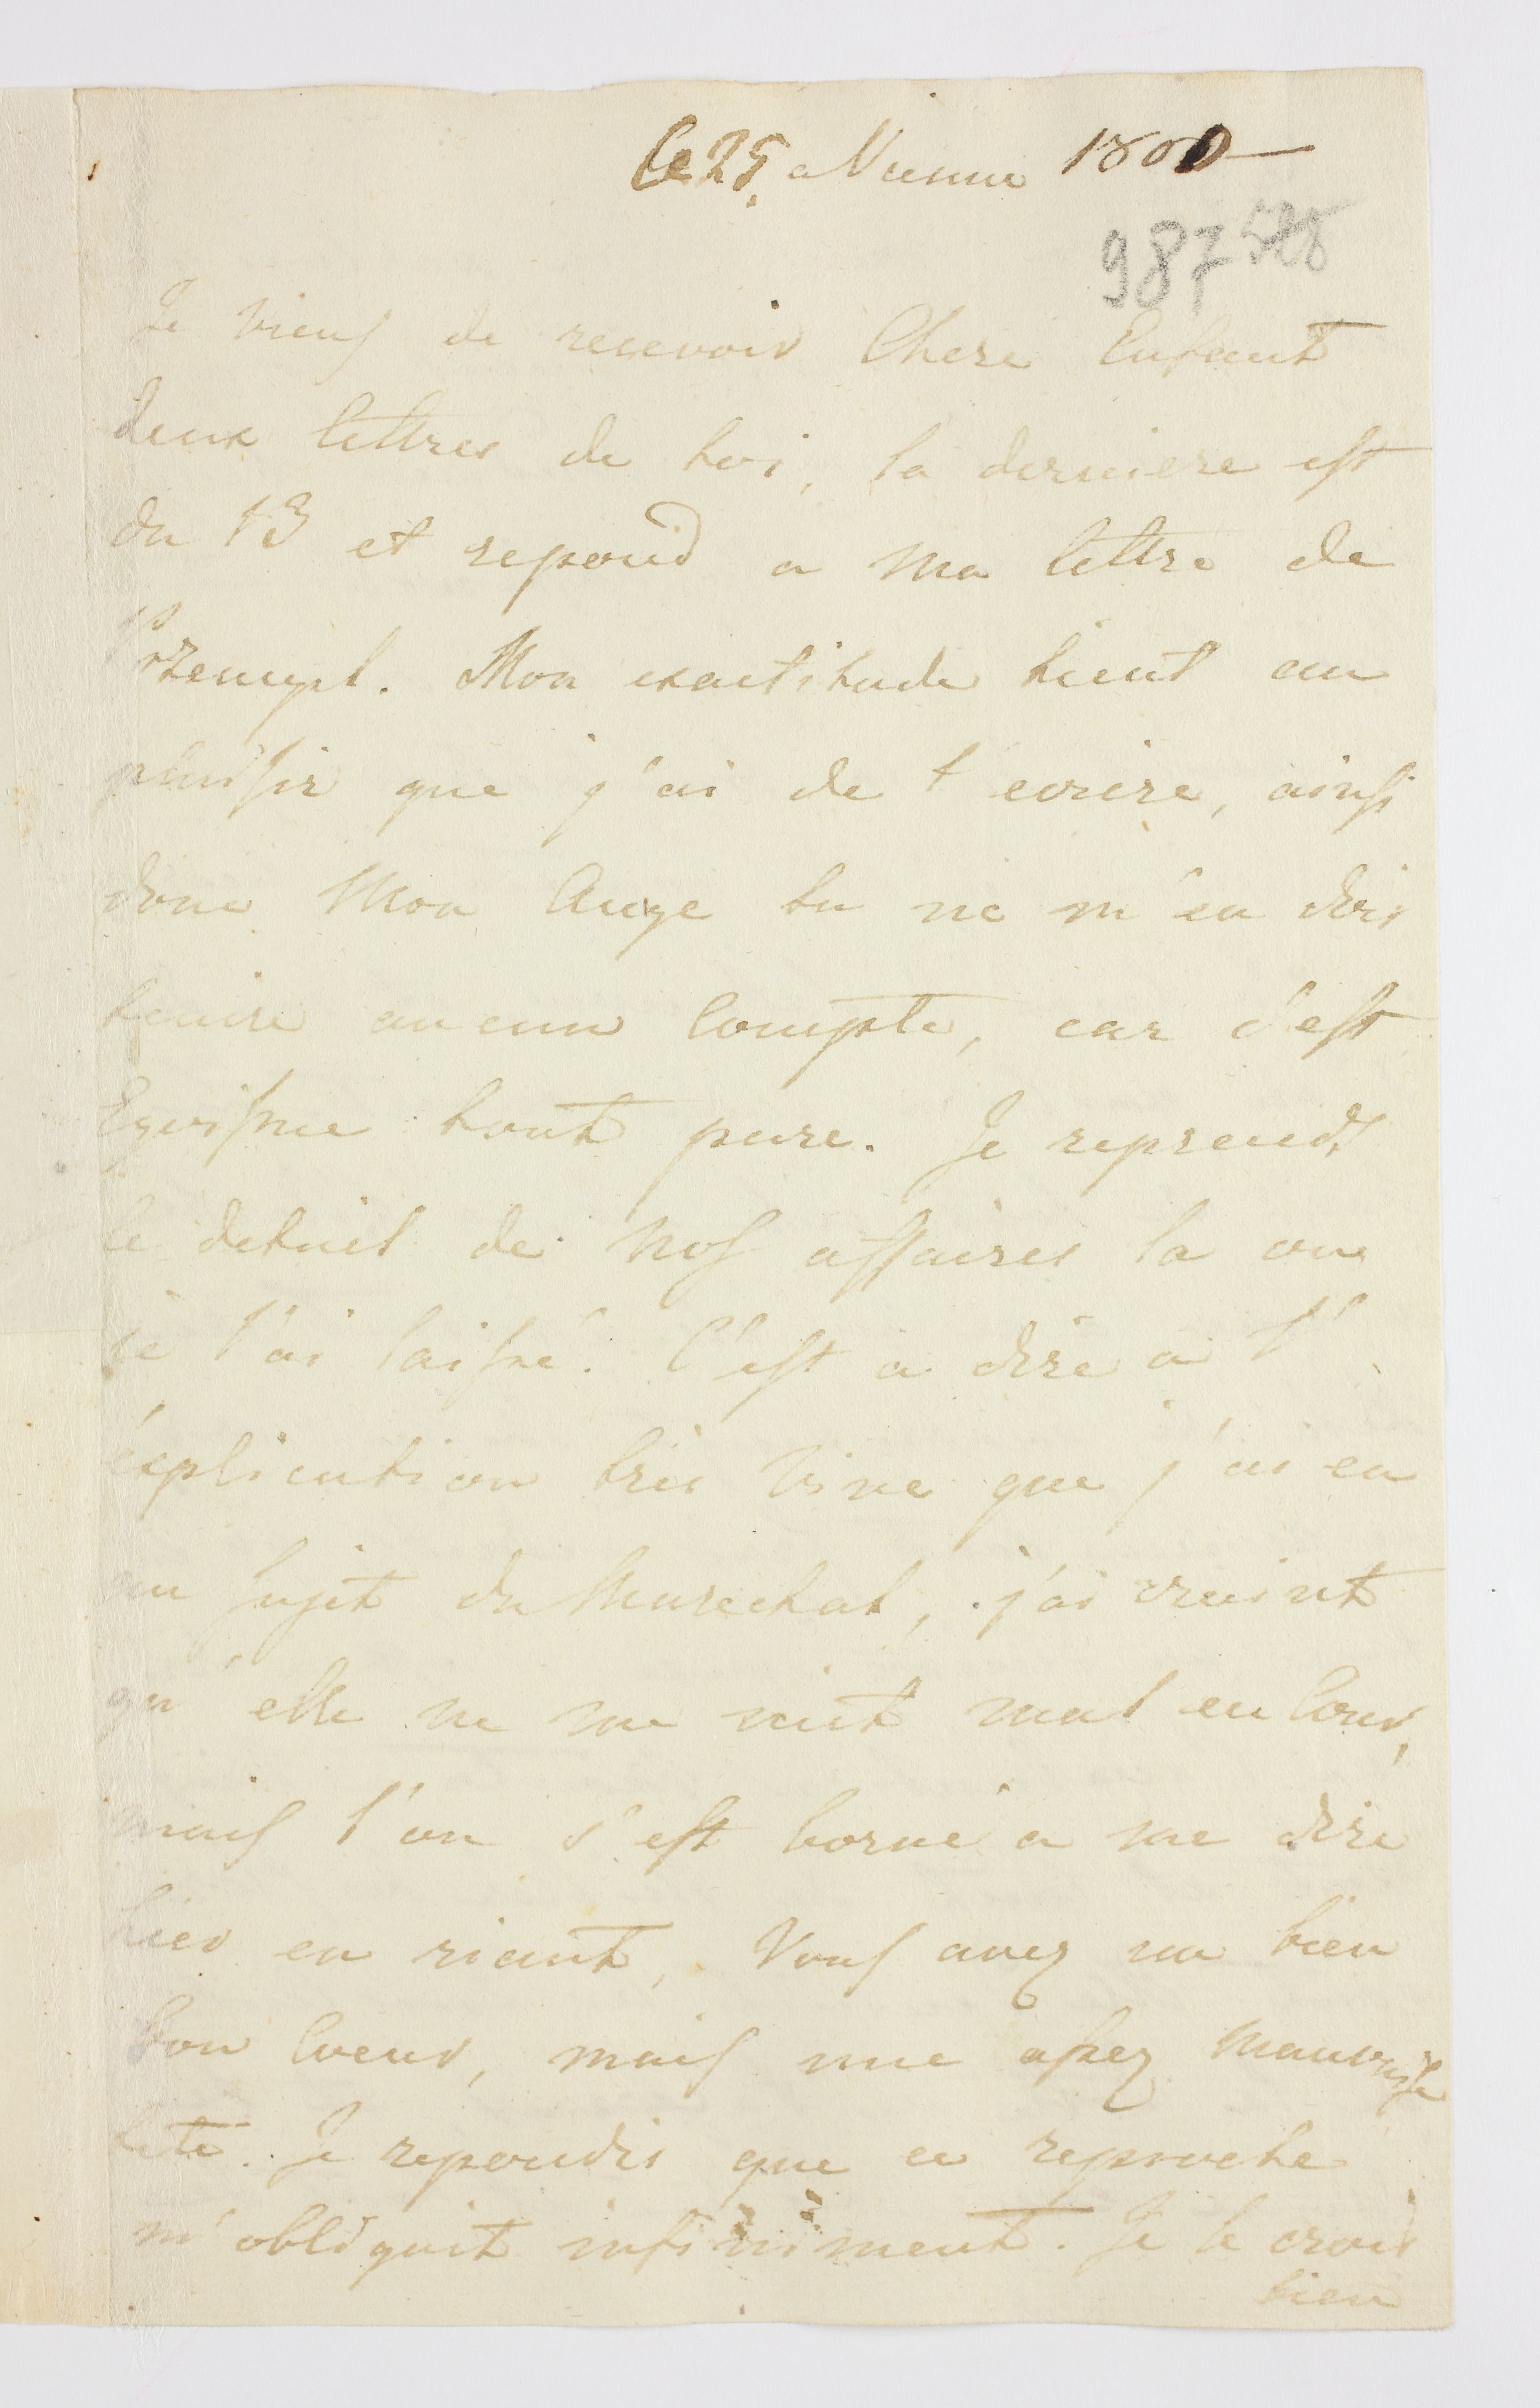 Ce 25. a Vienne 1800
987 528
Je viens de recevoir Chere Enfant
deux lettres de toi, la derniere est
du 13 et repond a ma lettre de
Przemysl. Mon exactitude tient au
plaisir que j'ai de t'ecrire, ainsi
donc Mon Ange tu ne m'en dois
tenire aucun Compte, car c'est
Egoisme tout pure. Je reprends
le detail de nos affaires la ou
je l'ai laissé. C'est a dire a l'
éxplication très vive que j'ai eu
au sujet du Marechal, j'ai craint
qu'elle ne me mit mal en Cour,
mais l'on s'est borné a me dire
hier en riant, Vous avez un bien
bon Coeur, mais une assez mauvaise
tete. Je repondis que ce reproche
m'obligait infiniment. Je le crois
bien